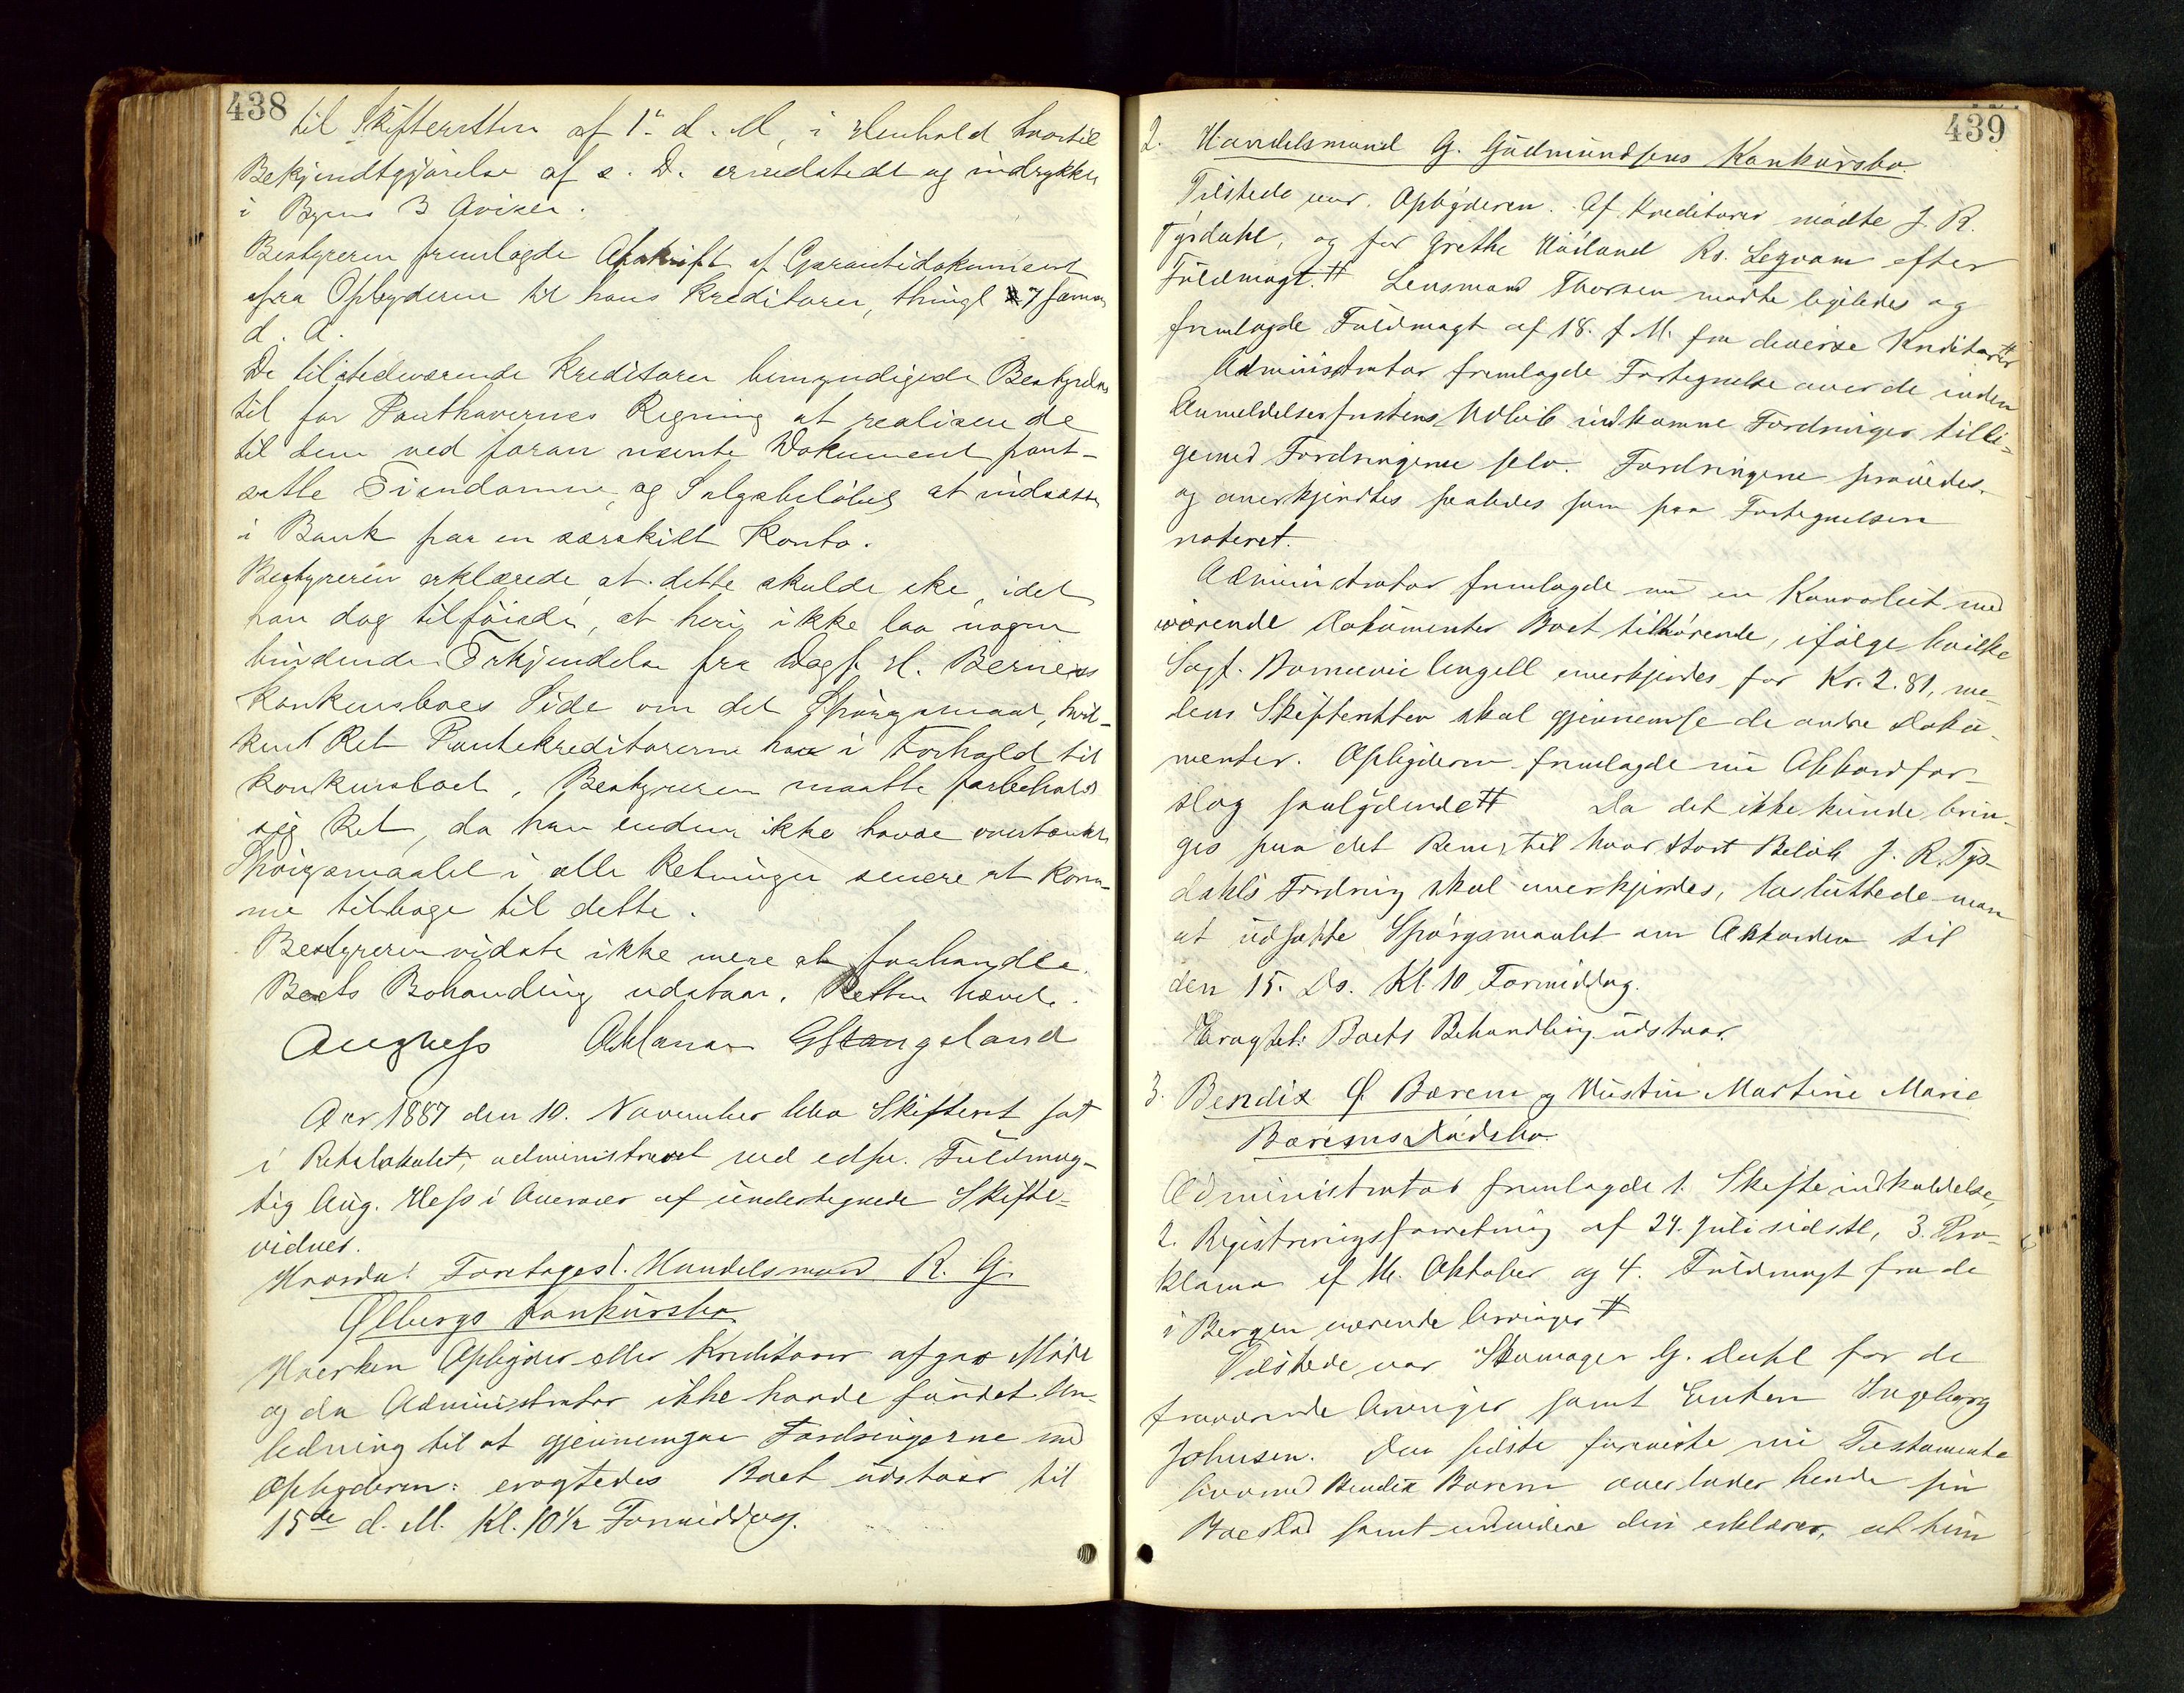 438
til Skifteretten af 1ste d. M, i Henhold hvortil
Bekjendtgjørelse af s. D. er udstedt og indrykket
i Byens 3 Aviser.
Bestyreren fremlagde Afskrift af Garantidokument
fra Opbyderen til hans Kreditorer, thingl 7 Januar
d. A.
De tilstedeværende Kreditorer bemyndigede Bestyreren
til for Panthavernes Regning at realisere de
til dem ved foran nævnte Dokument pant-
satte Eiendomme, og Salgsbeløbet at indsætte
i Bank paa en særskilt Konto.
Bestyreren erklærede at dette skulde ske, idet
han dog tilføiede, at heri ikke laa nogen
bindende Erkjendelse fra Dagf. H. Berners
Konkursboes Side om det Spørgsmaal, hvil-
ken Ret Pantekreditorerne har i Forhold til
Konkursboet. Bestyreren maatte forbeholde
sig Ret, da han endnu ikke havde overtænkt
Spørgsmaalet i alle Retninger senere at kom-
me tilbage til dette.
Bestyreren vidste ikke mere at forhandle.
Boets Behandling udstaar. Retten hævet.
Aug Hess GStangeland
Aar 1887 den 10. November blev Skifteret sat
i Retslokalet, administreret ved edsv. Fuldmæg-
tig Aug. Hess i Overvær af undertegnede Skifte-
vidner.
Hvorda: Foretoges 1. Handelsmand R. G.
Ølbergs Konkursbo
Hverken Opbyder eller Kreditorer afgav Møde
og da Administrator ikke havde fundet An-
ledning til at gjennemgaa Fordringerne med
Opbyderen: eragtedes Boet udstaar til
15de d. M. Kl. 10½ Formiddag.
439
2. Handelsmand G. Gudmundsens Konkursbo.
Tilstede var Opbyderen. Af Kreditorer mødte J. R.
Tysdahl, og for Grethe Høiland Rs. Legvam efter
Fuldmagt.# Lensmand Thorsen mødte ligeledes og
fremlagde Fuldmagt af 18. f. M. fra diverse Kreditorer#
Administrator fremlagde Fortegnelse over de inden
Anmeldelsesfristens Udløb indkomne Fordringer tilli-
gemed Fordringerne selv. Fordringerne prøvedes
og anerkjendtes saaledes som paa Fortegnelsen
noteret.
Administrator fremlagde nu en Konvolut med
værende Dokumenter Boet tilhørende, ifølge hvilke
Sagf. Engell anerkjendes for Kr. 2.81, me-
dens Skifteretten skal gjennemse de andre Doku-
menter. Opbyderen fremlagde nu Akkordfor-
slag saalydende# Da det ikke kunde brin-
ges paa det Rene, til hvor stort Beløb J. R. Tys-
dahls Fordring skal anerkjendes, besluttede man
at udsætte Spørgsmaalet om Akkorden til
den 15. Ds. Kl. 10 Formiddag.
Eragtet: Boets Behandling udstaar.
3. Bendix Ø. Børem og Hustru Martine Marie
Børems Dødsbo.
Administrator fremlagde 1. Skifteindkaldelse,
2. Registreringsforretning af 24. Juli sidstl, 3. Pro-
klama af 14. Oktober og 4. Fuldmagt fra de
i Bergen værende Arvinger #
Tilstede var Skomager G. Dahl for de
fraværende Arvinger samt Enken Ingeborg
Johnsen. Den sidste foreviste nu Testamente
hvorved Bendix Børem overlader hende sin
Boeslod samt endvidere den erklærer, at hun